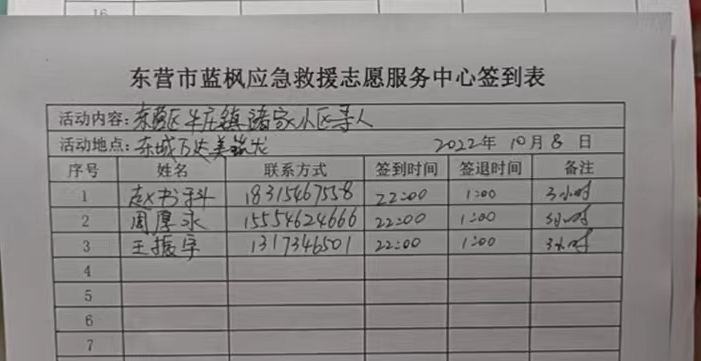 16
东营市蓝枫应急救援志愿服务中心签到表
活动内容: 东营区牛庄镇诸家小区寻人
活动地点: 东城万达美 2022年 10月 8 日
序号 姓名 联系方式 签到时间 签退时间 备注
1 赵书科 18315467558 22:00 1:00 3小时
2 周厚永 15554624666 22:00 1:00 3小时
3 王振宇 1317346501 22:00 1:00 3小时
4
5
6
7